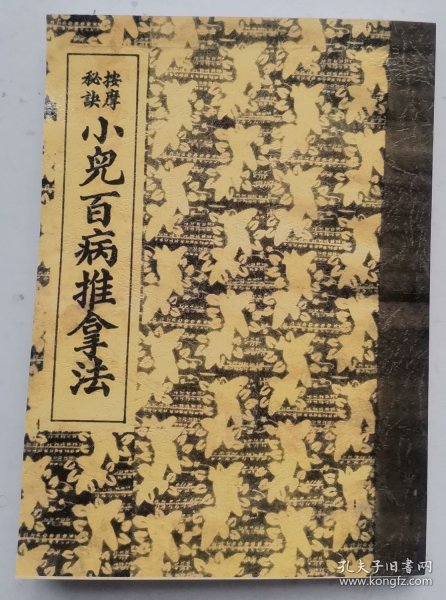 按摩
秘诀
小兒百病推拿法
孔夫子旧书网
www.kongfz.com